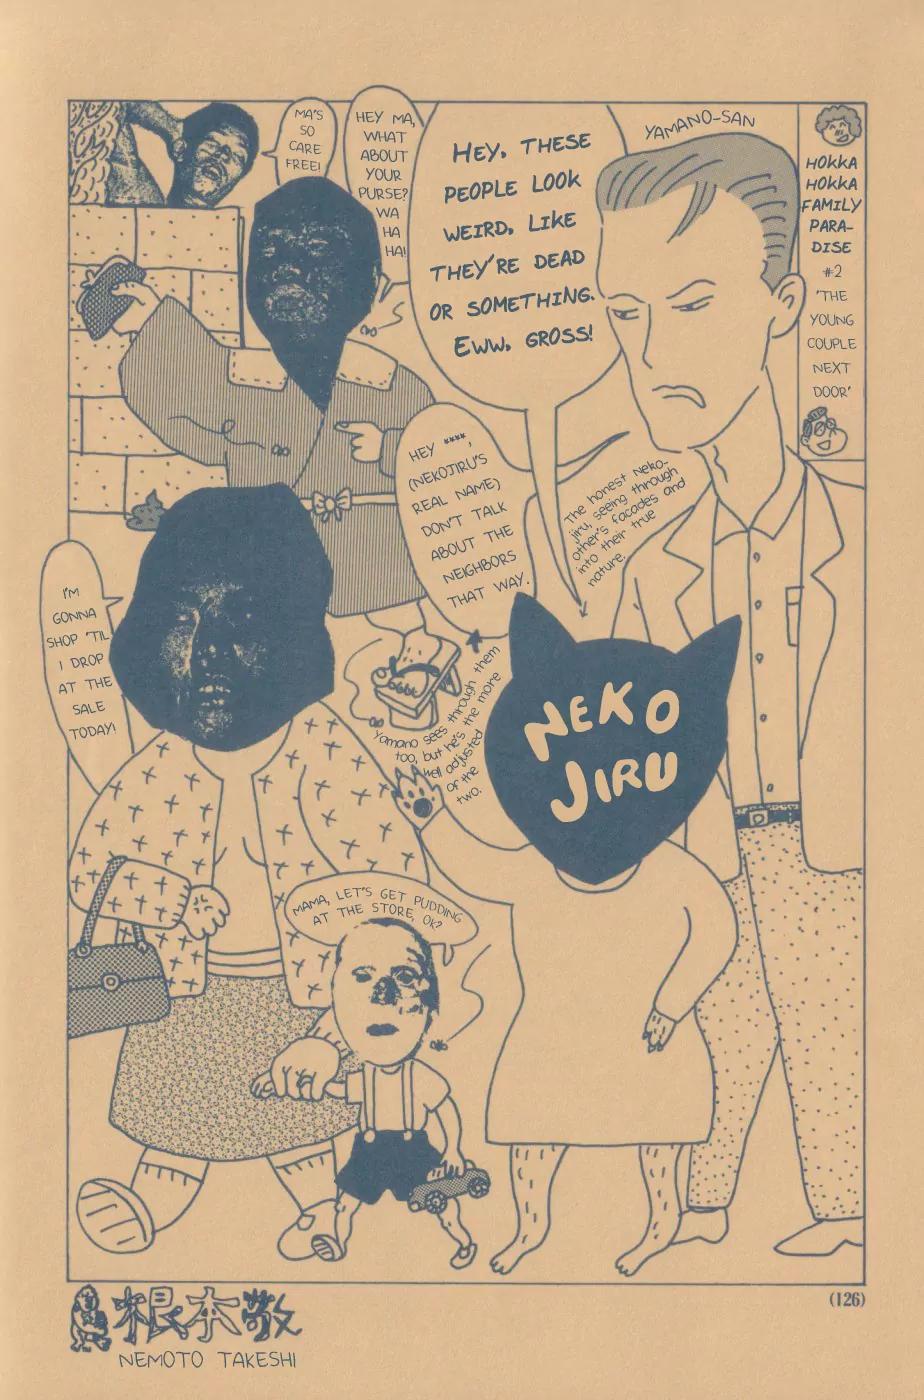 MA'S
SO
CARE
FREE!
HEY MA,
WHAT
ABOUT
YOUR
PURSE?
WA
HA
HA!
HEY, THESE
PEOPLE LOOK
WEIRD. LIKE
THEY'RE DEAD
OR SOMETHING.
EWW. GROSS!
YAMANO-SAN
HOKKA
HOKKA
FAMILY
PARA-
DISE
#2
'THE
YOUNG
COUPLE
NEXT
DOOR'
HEY ****,
(NEKOJIRU'S
REAL NAME)
DON'T TALK
ABOUT THE
NEIGHBORS
THAT WAY.
The honest Neko-
jiru, seeing through
other's facades and
into their true
nature.
I'M
GONNA
SHOP 'TIL
I DROP
AT THE
SALE
TODAY!
Yamano sees through them
too, but he's the more
well adjusted
of the
two.
NEKO
JIRU
MAMA, LET'S GET PUDDING
AT THE STORE, OK?
(126)
根本敬
NEMOTO TAKESHI